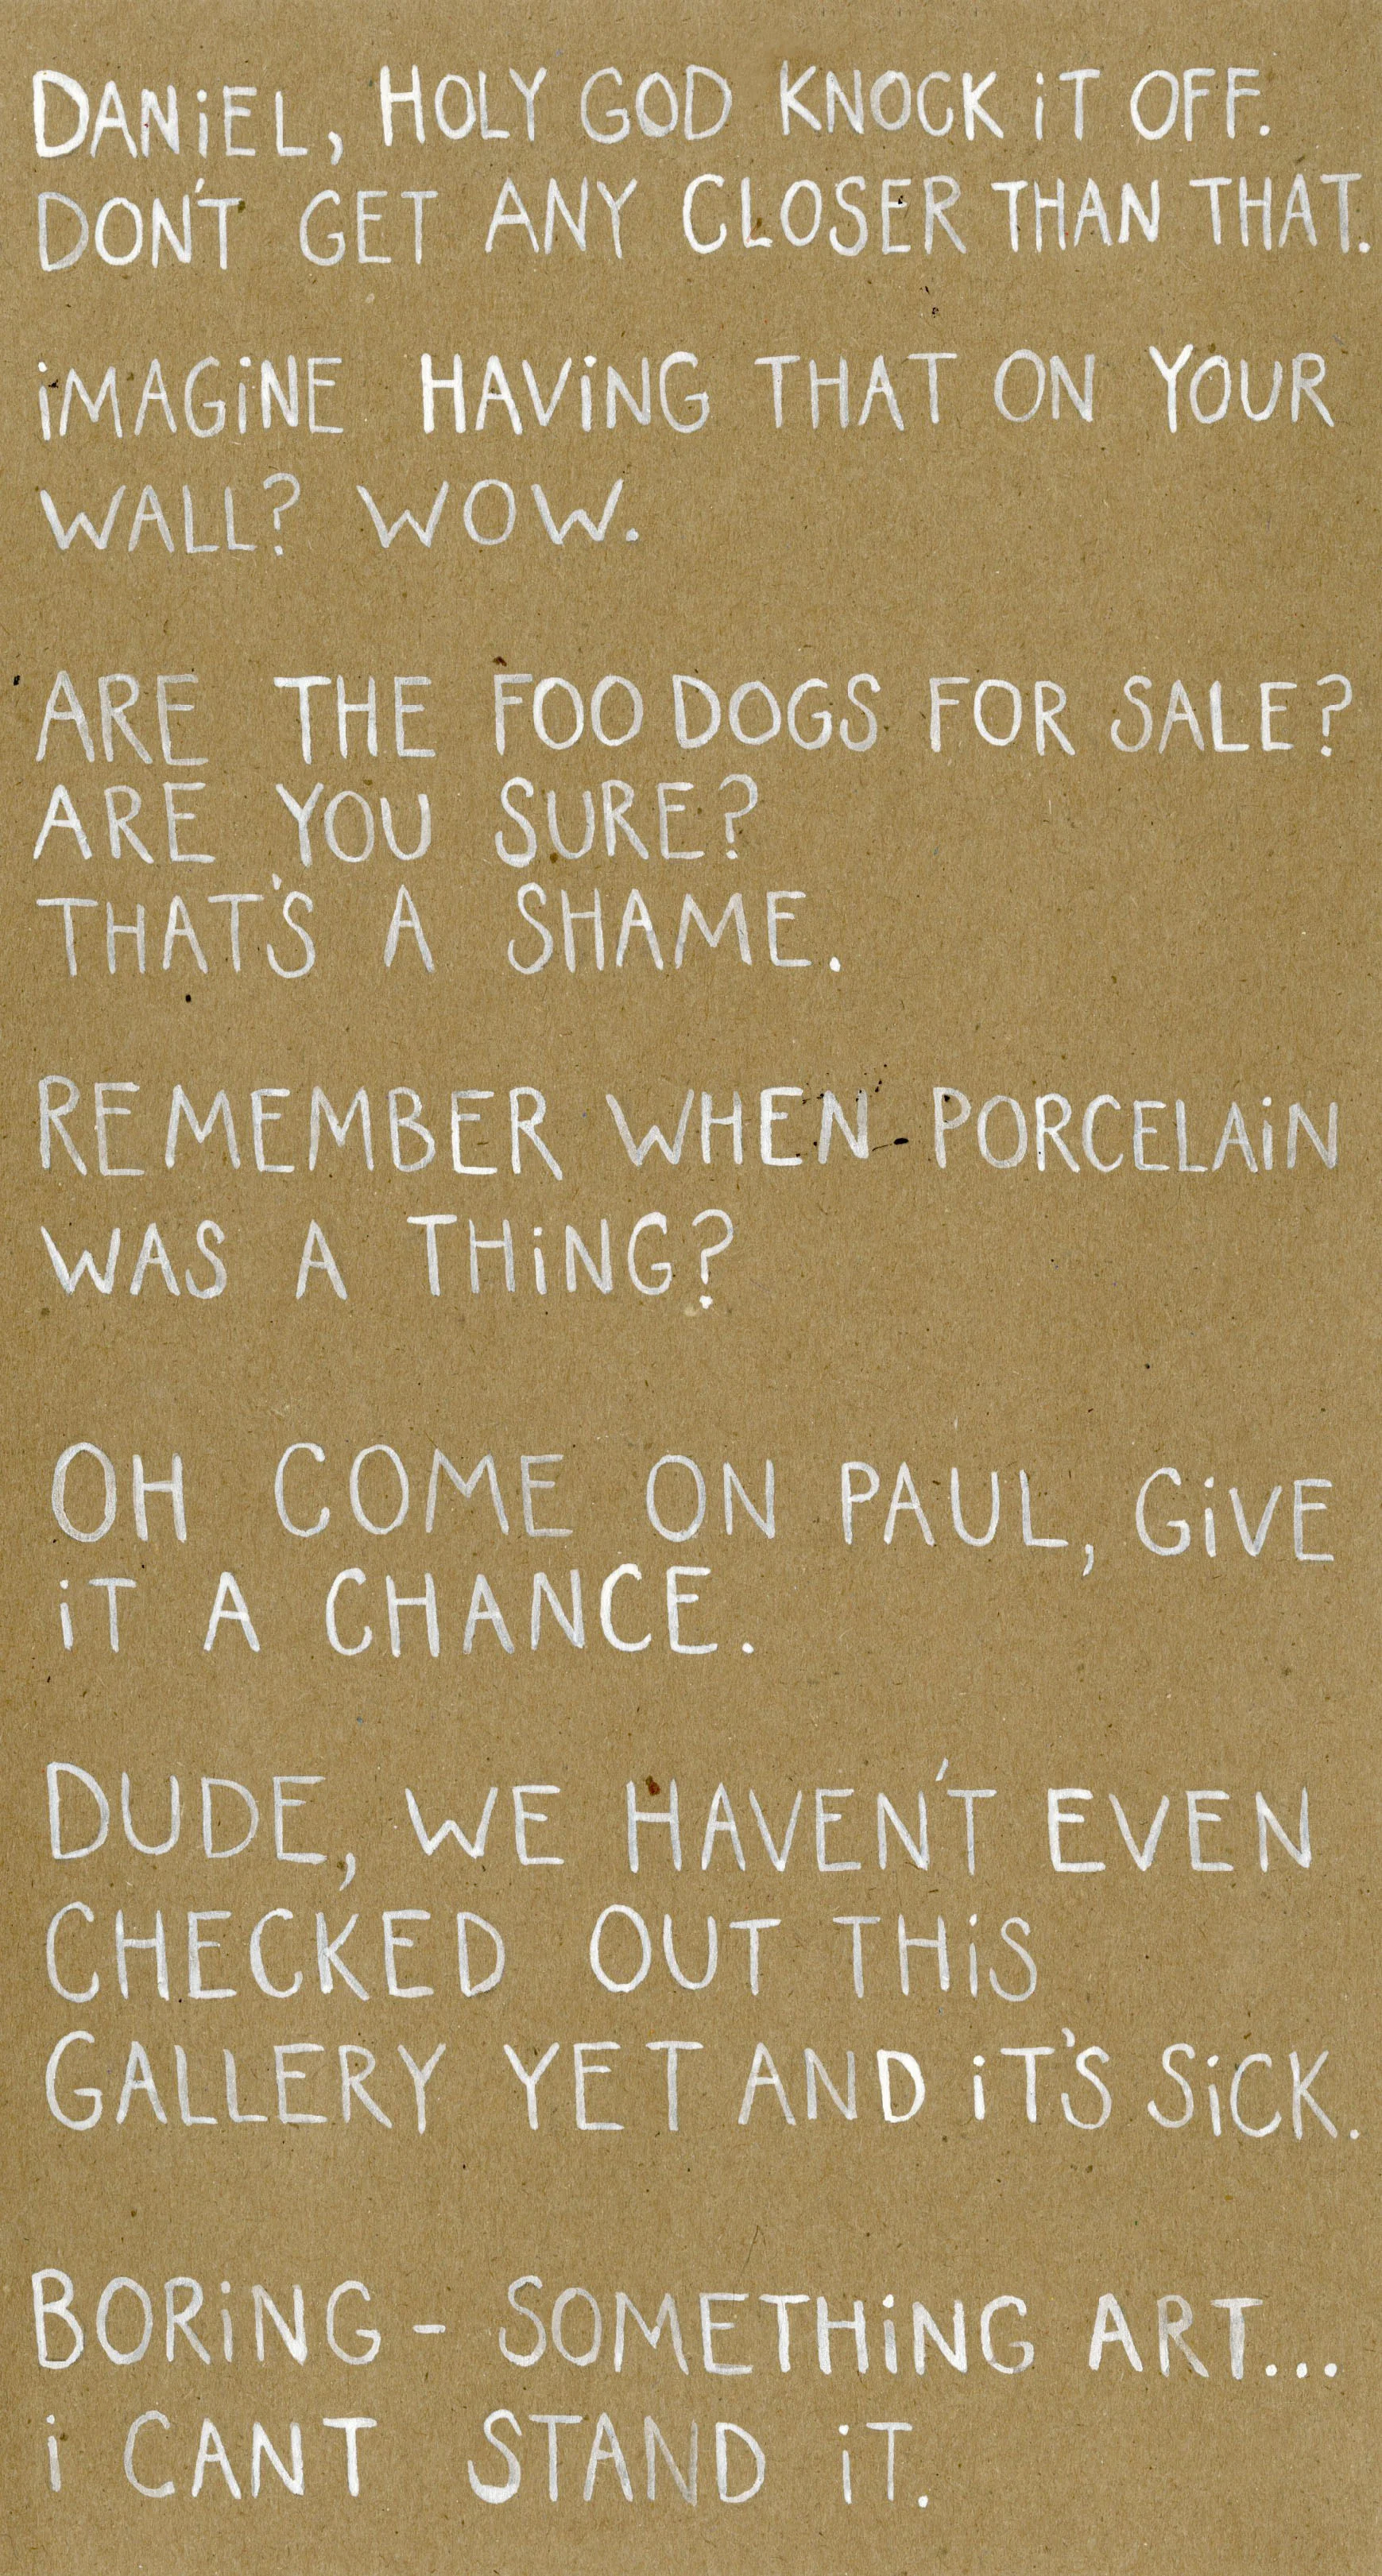 DANiEL, HOLY GOD KNOCK iT OFF.
DON'T GET ANY CLOSER THAN THAT.
iMAGiNE HAViNG THAT ON YOUR
WALL? WOW.
ARE THE FOO DOGS FOR SALE?
ARE YOU SURE?
THAT'S A SHAME.
REMEMBER WHEN PORCELAiN
WAS A THiNG?
OH COME ON PAUL, GiVE
iT A CHANCE.
DUDE, WE HAVEN'T EVEN
CHECKED OUT THiS
GALLERY YET AND iT'S SiCK.
BORiNG - SOMETHiNG ART...
i CANT STAND iT.